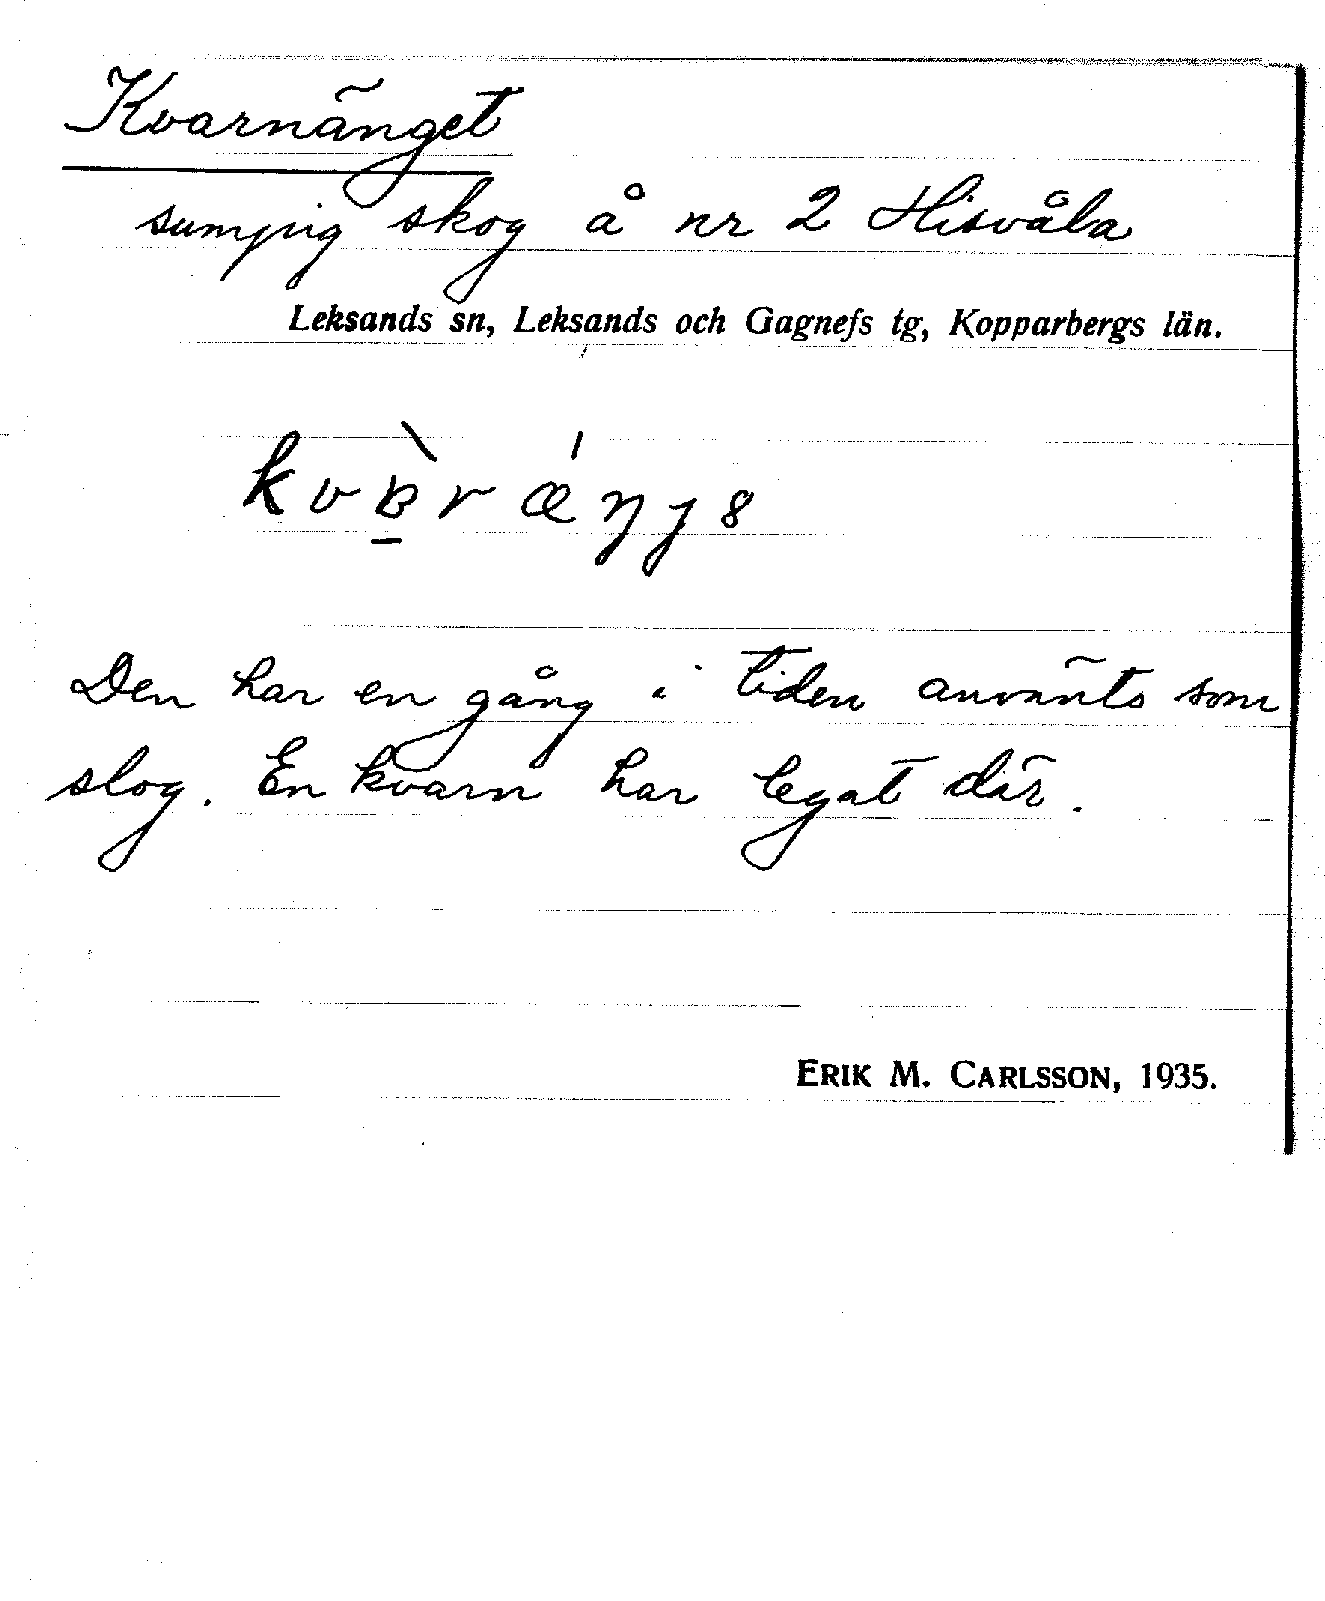 Kvarnänget
sumpig skog å nr 2 Hisvåla
Leksands sn, Leksands och Gagnefs tg, Kopparbergs län.
Den har en gång i tiden använts som
slog. En kvarn har legat där.
ERIK M. CARLSSON, 1935.